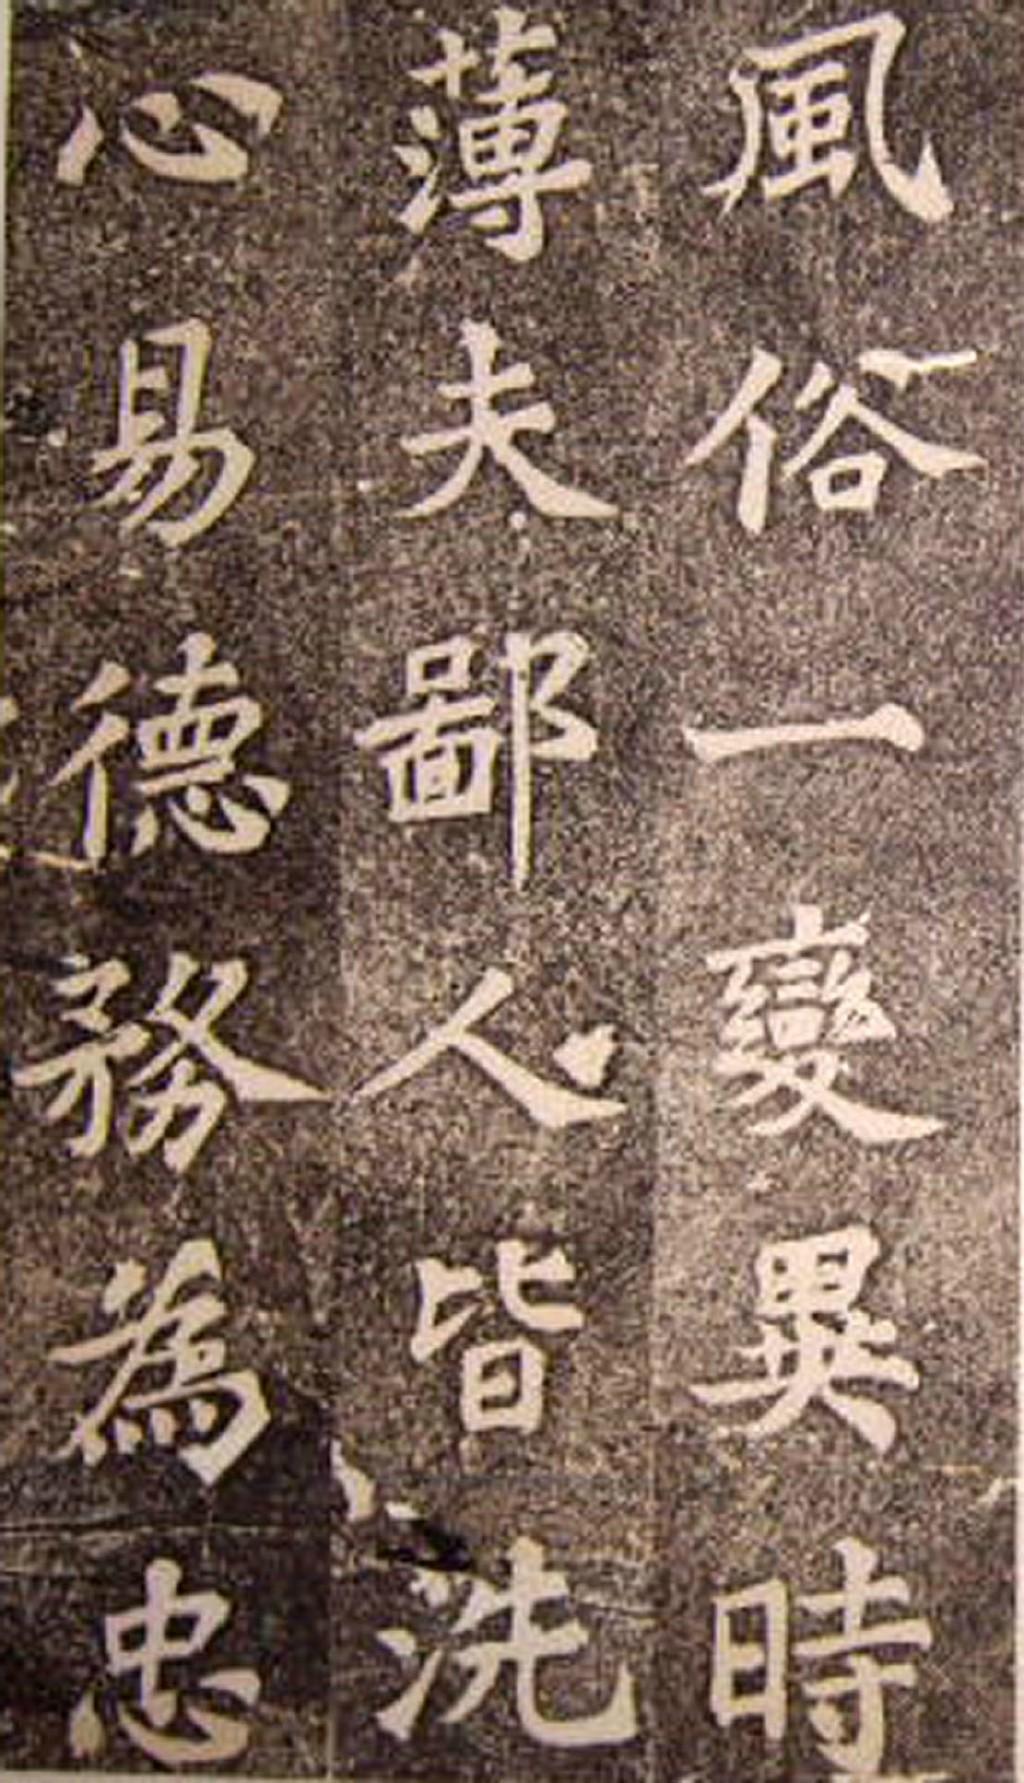 風俗一變異時
薄夫鄙人皆洗
心易德務為忠